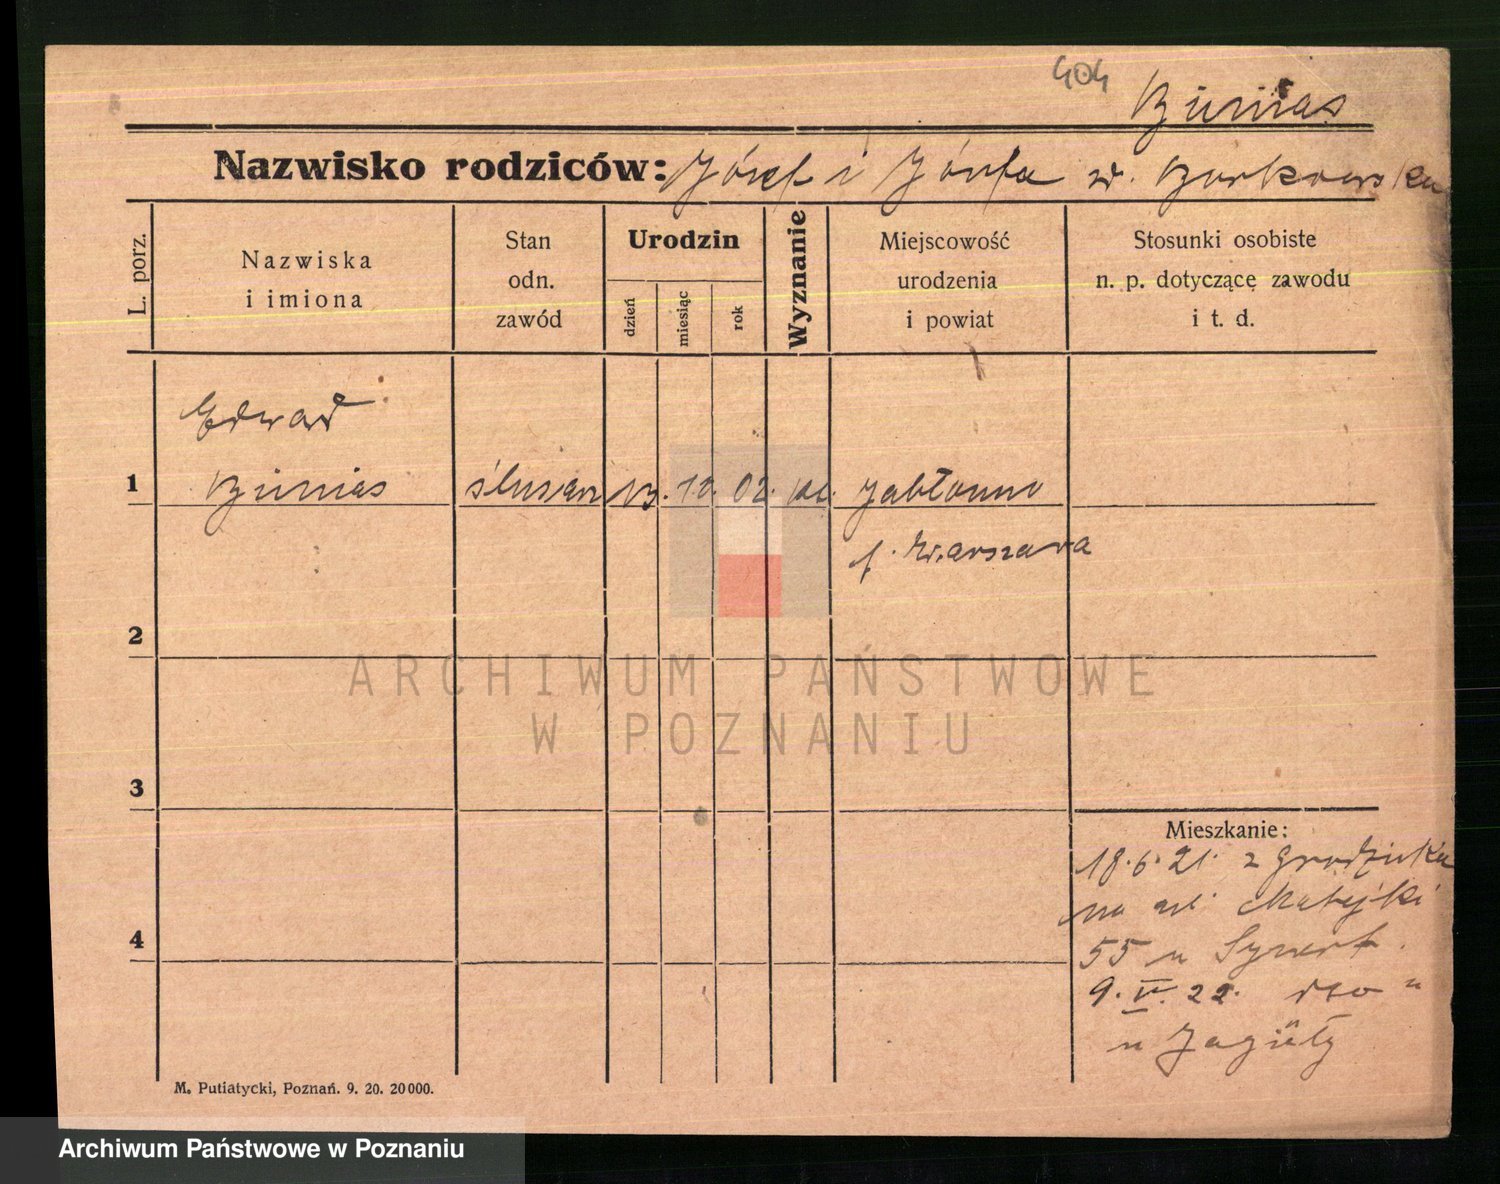 404
Nazwisko rodziców: Józef i Józefa
L. porz.
Nazwiska
i imiona
Stan
odn.
zawód
Urodzin
dzień
miesiąc
rok
Wyznanie
Miejscowość
urodzenia
i powiat
Stosunki osobiste
n. p. dotyczącę zawodu
i t. d.
Edward
1
ślusarz 13. 12. 02. kat. Jabłonna
p. Warszawa
2
ARCHIWUM PAŃSTWOWE
W POZNANIU
3
Mieszkanie:
18. 6. 21. z Grodziska
na ul. Matejki
4
55 u
9. V. 22. dto "
u
M. Putiatycki, Poznań. 9. 20. 20000.
Archiwum Państwowe w Poznaniu